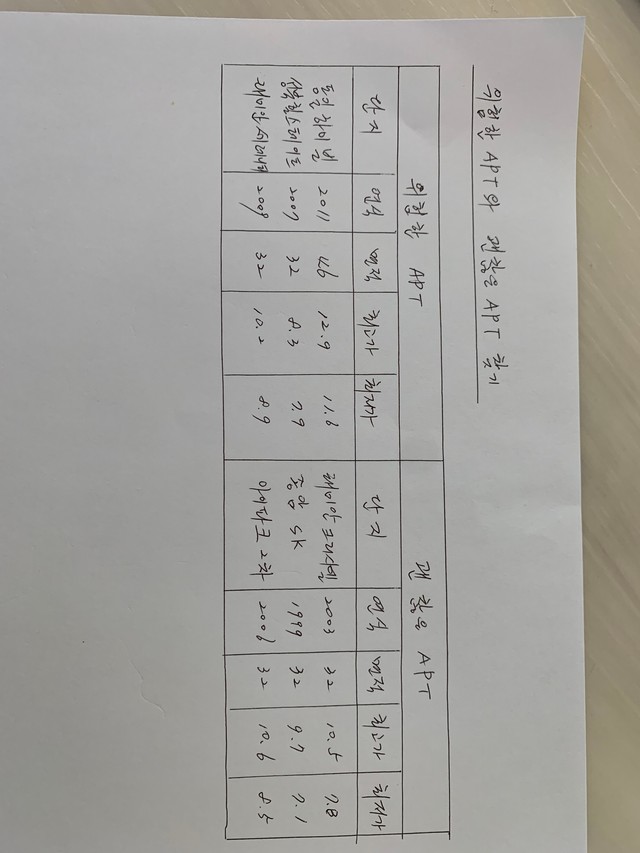 위험한 APT와 괜찮은 APT 찾기
위험한 APT 괜찮은 APT
단지 연식 평형 최고가 최저가 단지 연식 평형 최고가 최저가
동일하이빌 2011 46 12.9 11.6 래미안 크리시엘 2003 32 10.5 7.8
힐스테이트 2007 32 8.3 7.9 중앙 SK 1999 32 9.7 7.1
래미안 2009 32 10.2 8.9 아이파크 2차 2006 32 10.6 8.5